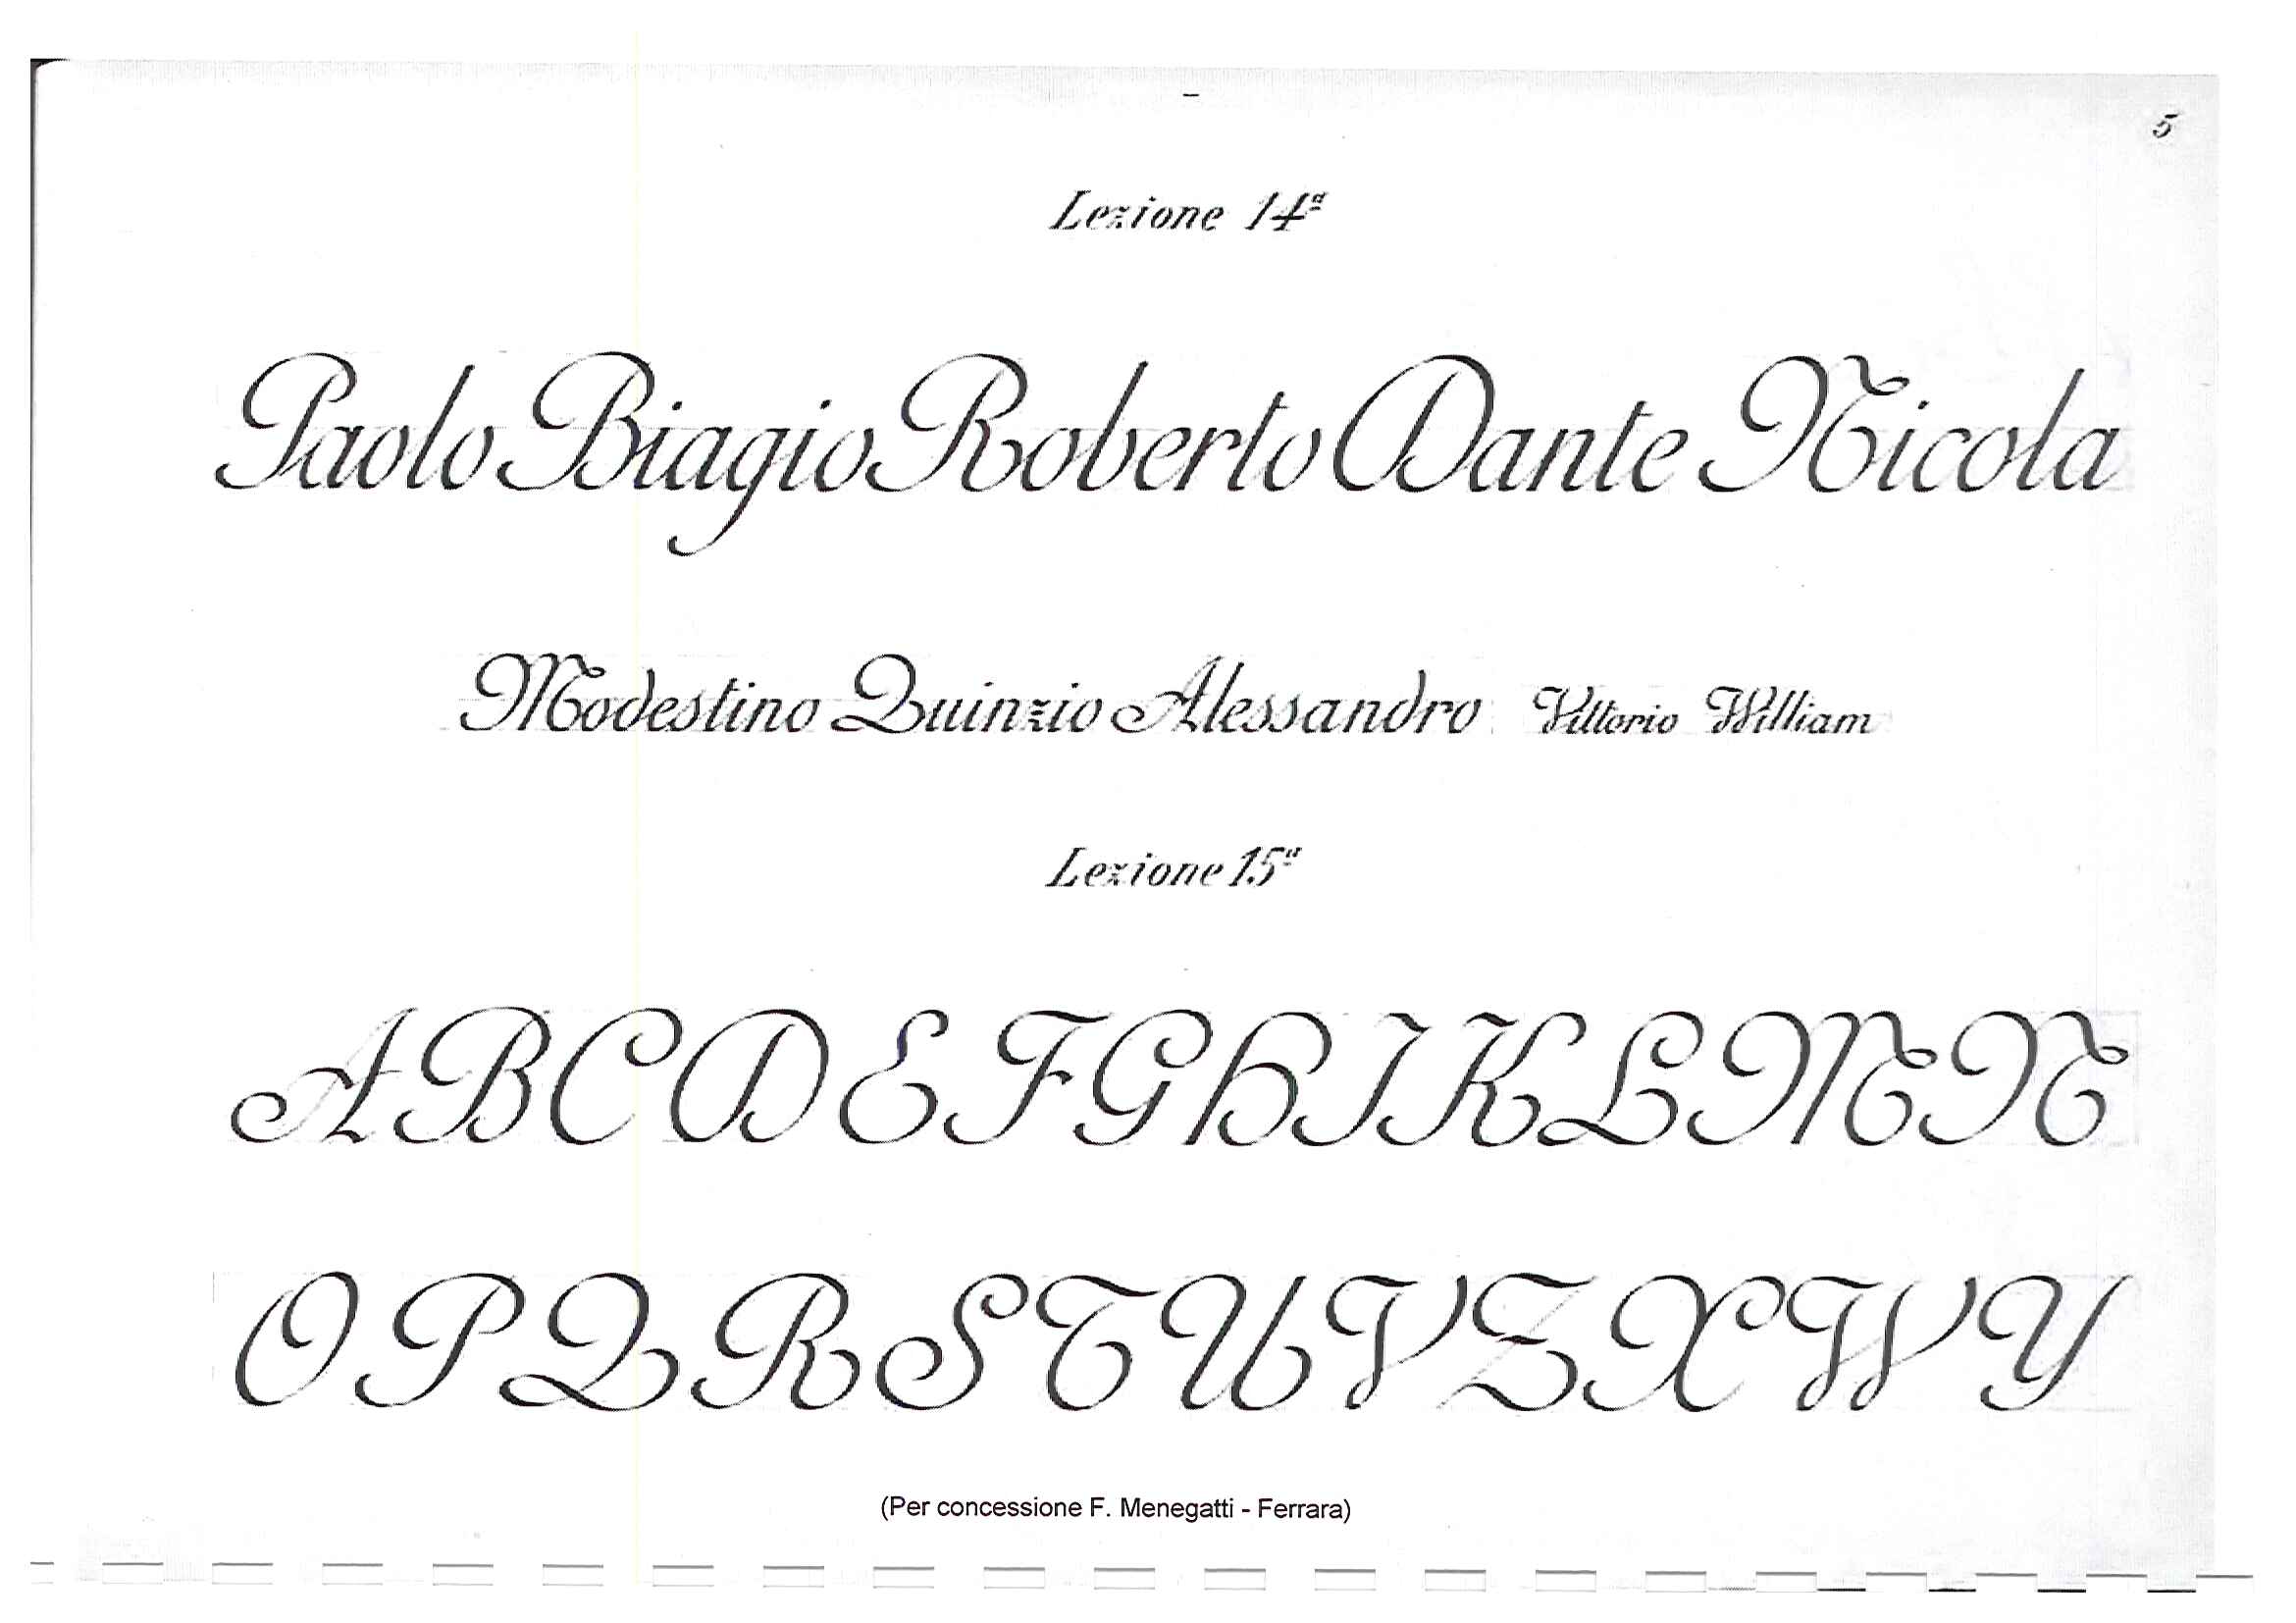 5
Lezione 14ª
Paolo Biagio Roberto Dante Nicola
Modestino Quinzio Alessandro Vittorio William
Lezione 15ª
A B C D E F G H I K L M N
O P Q R S T U V Z X W Y
(Per concessione F. Menegatti - Ferrara)